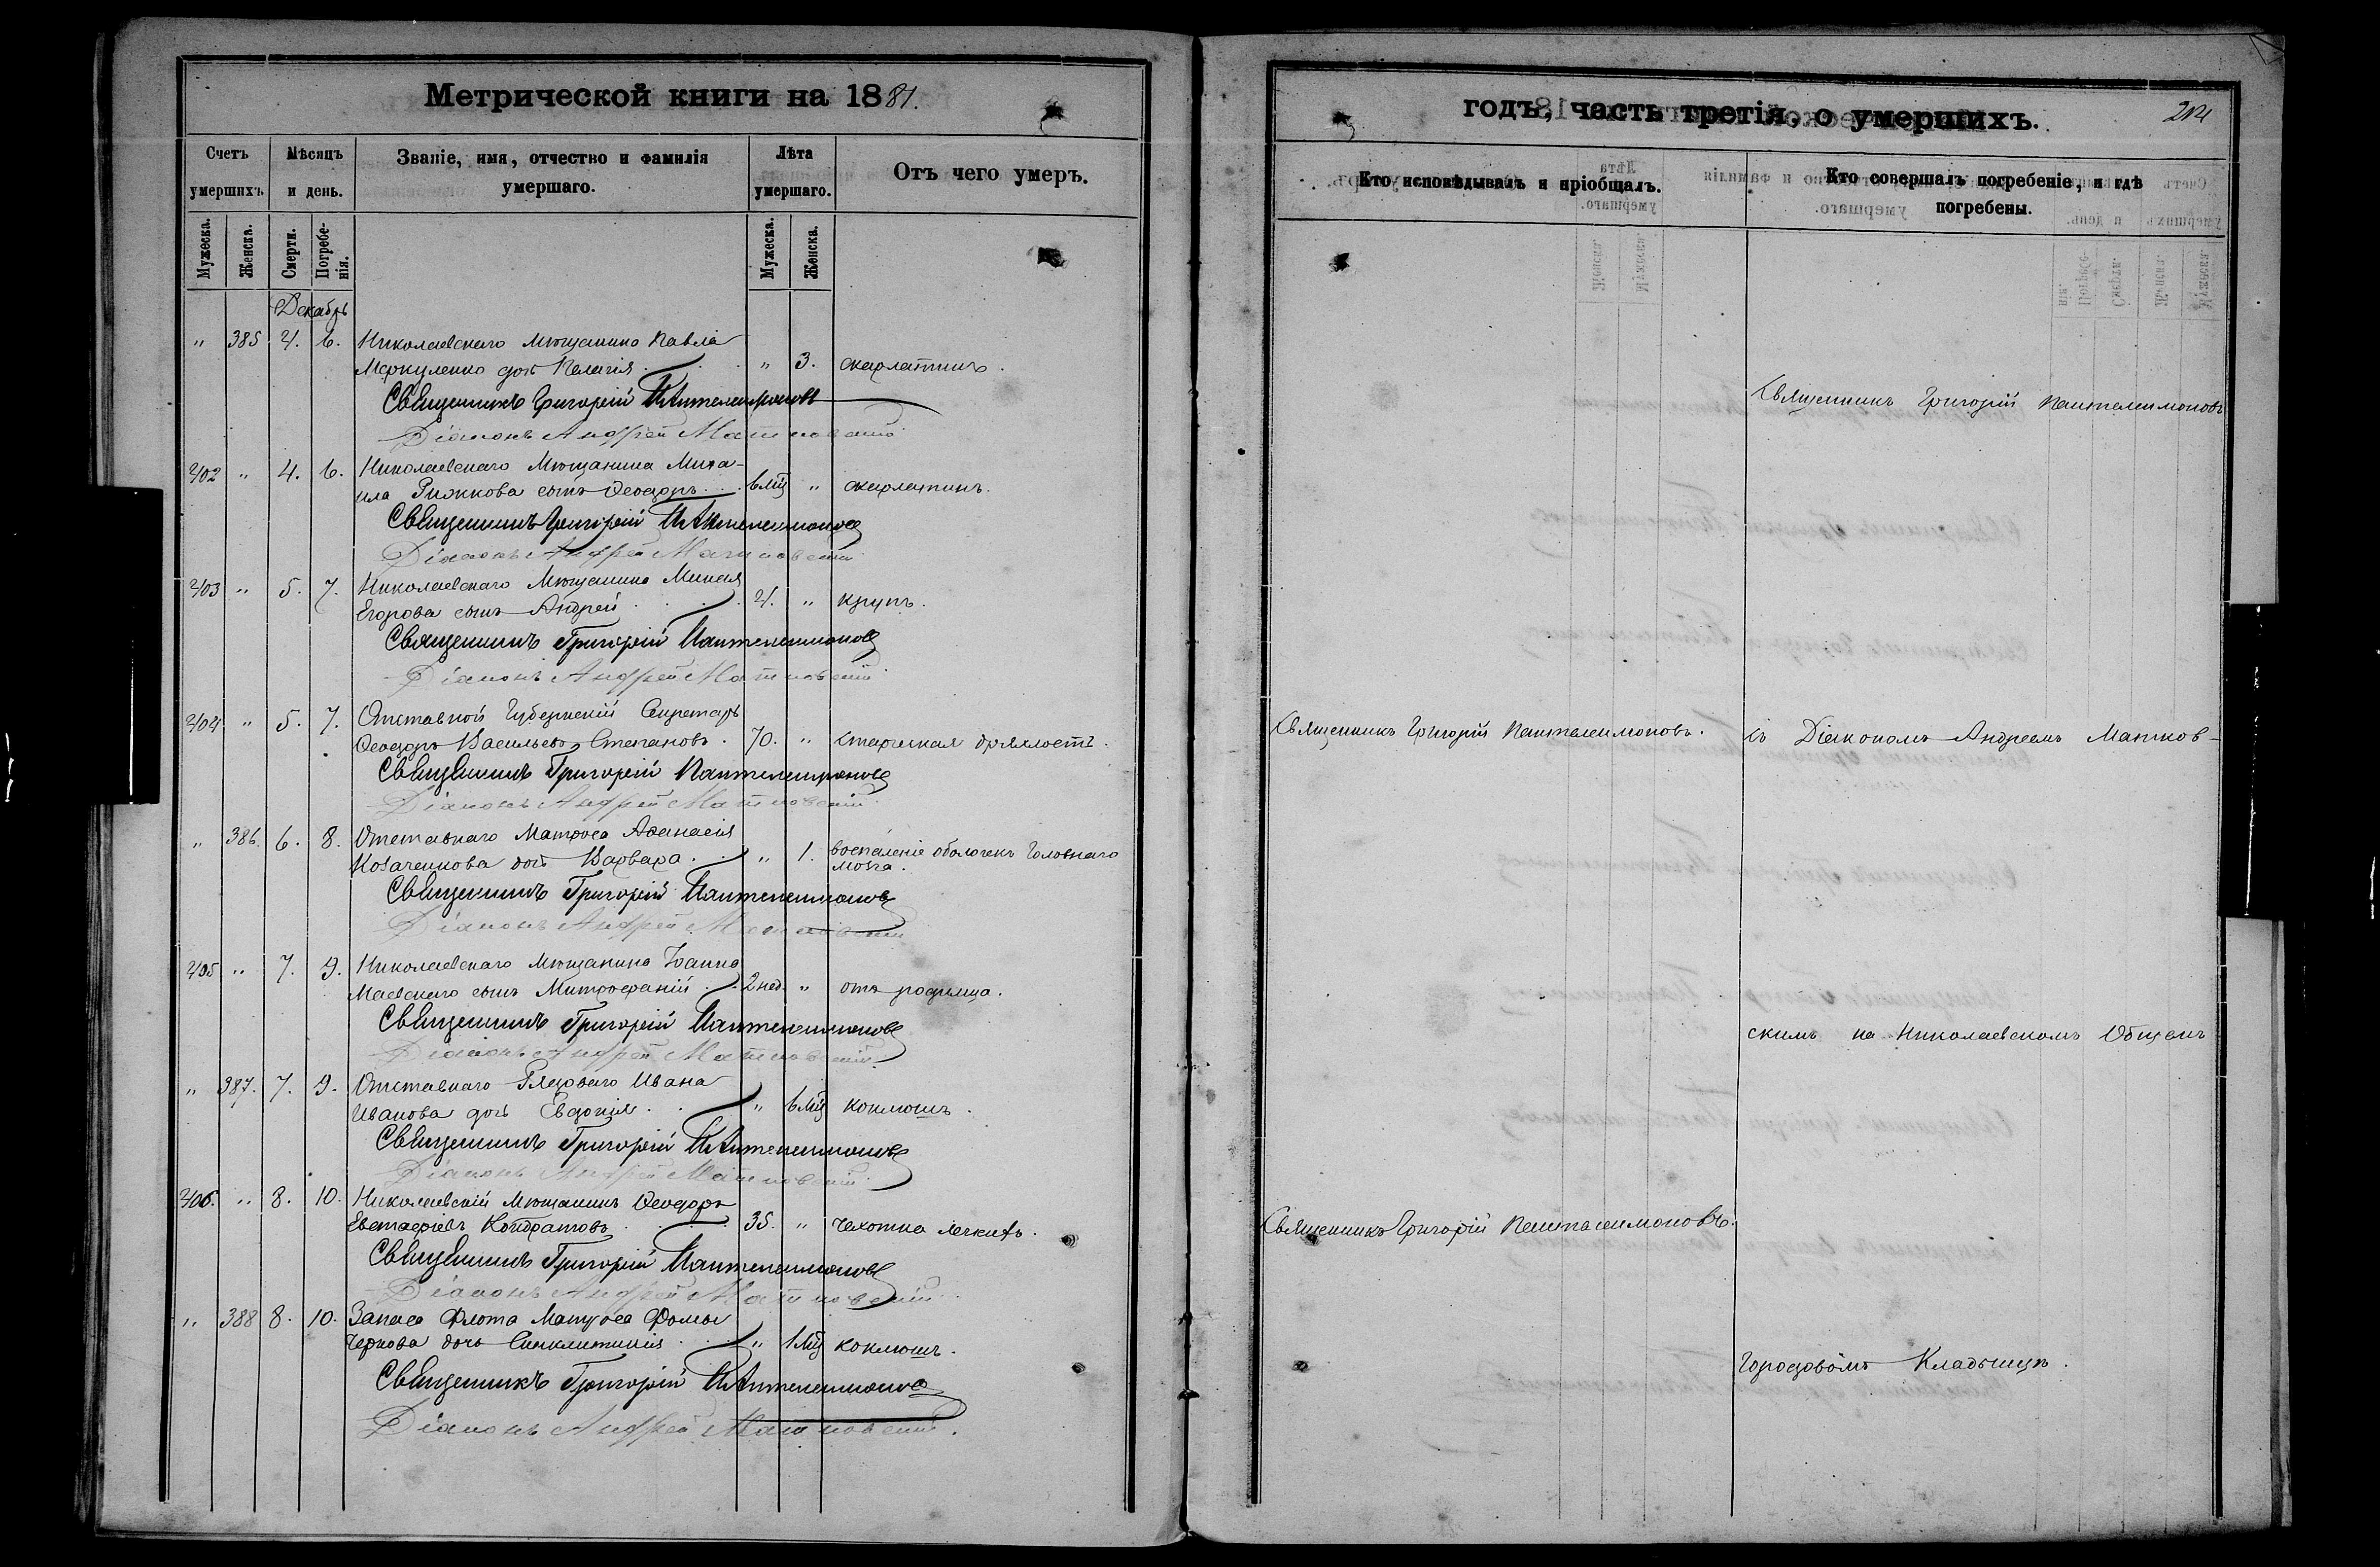 Метрической книги на 1881.
Счетъ умершихъ.
Мѣсяцъ и день.
Званіе, имя, отчество и фамилія умершаго.
Лѣта умершаго.
Отъ чего умеръ.
Мужеска. Женска. Смерти. Погребенія. Мужеска. Женска.
Декабрь
" 385 4. 6. Николаевскаго Мѣщанина Павла
Меркуленко дочь Пелагія " 3. скарлатинъ.
Священникъ Григорій Пантелеимоновъ
Діаконъ Андрей Матковскій
402 " 4. 6. Николаевскаго Мѣщанина Миха-
ила Рижкова сынъ Ѳеодоръ 6 мц " скарлатинъ.
Священникъ Григорій Пантелеимоновъ
Діаконъ Андрей Матковскій
403 " 5. 7. Николаевскаго Мѣщанина
Егорова сынъ Андрей 4. " крупъ.
Священникъ Григорій Пантелеимоновъ
Діаконъ Андрей Матковскій
404 " 5. 7. Отставной Губернскій Секретарь
Ѳеодоръ Васильевъ Степановъ. 70. " старческая дряхлость.
Священникъ Григорій Пантелеимоновъ
Діаконъ Андрей Матковскій
" 386. 6. 8. Отставнаго Матроса Аѳанасія
Козаченкова дочь Варвара " 1. воспаленіе оболочекъ головнаго
мозга.
Священникъ Григорій Пантелеимоновъ
Діаконъ Андрей Матковскій
405 " 7. 9. Николаевскаго Мѣщанина Іоанна
Маевскаго сынъ Митрофаній 2 нед. " отъ родимца.
Священникъ Григорій Пантелеимоновъ
Діаконъ Андрей Матковскій
" 387. 7. 9. Отставнаго Рядоваго Ивана
Иванова дочь Евдокія " 6 мц коклюшъ.
Священникъ Григорій Пантелеимоновъ
Діаконъ Андрей Матковскій
406. " 8. 10. Николаевскій Мѣщанинъ Ѳеодоръ
Евстафіевъ Кондратовъ 35. " чахотка легкихъ.
Священникъ Григорій Пантелеимоновъ
Діаконъ Андрей Матковскій
" 388 8. 10. Запаса Флота Матроса Фомы
Чернова дочь Синклитикія " 1 мц коклюшъ.
Священникъ Григорій Пантелеимоновъ
Діаконъ Андрей Матковскій.
годъ, часть третія, о умершихъ.
Кто исповѣдывалъ и пріобщалъ.
Кто совершалъ погребеніе, и гдѣ
погребены.
Священникъ Григорій Пантелеимоновъ
Священникъ Григорій Пантелеимоновъ. съ Діакономъ Андреемъ Матков-
скимъ на Николаевскомъ Общемъ
Священникъ Григорій Пантелеимоновъ.
Городовомъ Кладбищѣ.